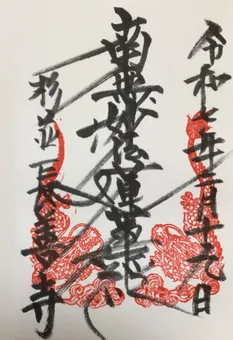 令和七年二月十九日
南無妙法蓮華経
杉並 長善寺